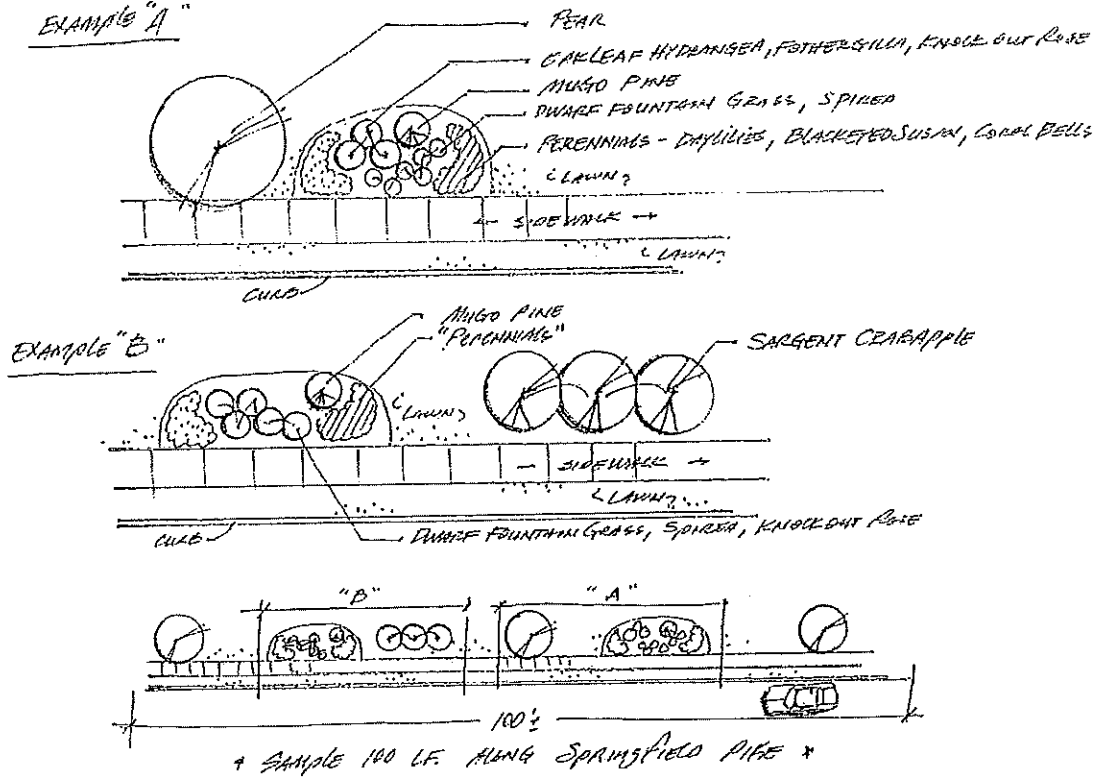 EXAMPLE "A"
PEAR
OAKLEAF HYDRANGEA, FOTHERGILLA, KNOCK OUT ROSE
MUGO PINE
DWARF FOUNTAIN GRASS, SPIREA
PERENNIALS - DAYLILIES, BLACKEYED SUSAN, CORAL BELLS
LAWN
← SIDEWALK →
LAWN
CURB
EXAMPLE "B"
MUGO PINE
"PERENNIALS"
SARGENT CRABAPPLE
LAWN
← SIDEWALK →
LAWN
CURB
DWARF FOUNTAIN GRASS, SPIREA, KNOCKOUT ROSE
"B" "A"
100'±
* SAMPLE 100 LF. ALONG SPRINGFIELD PIKE *